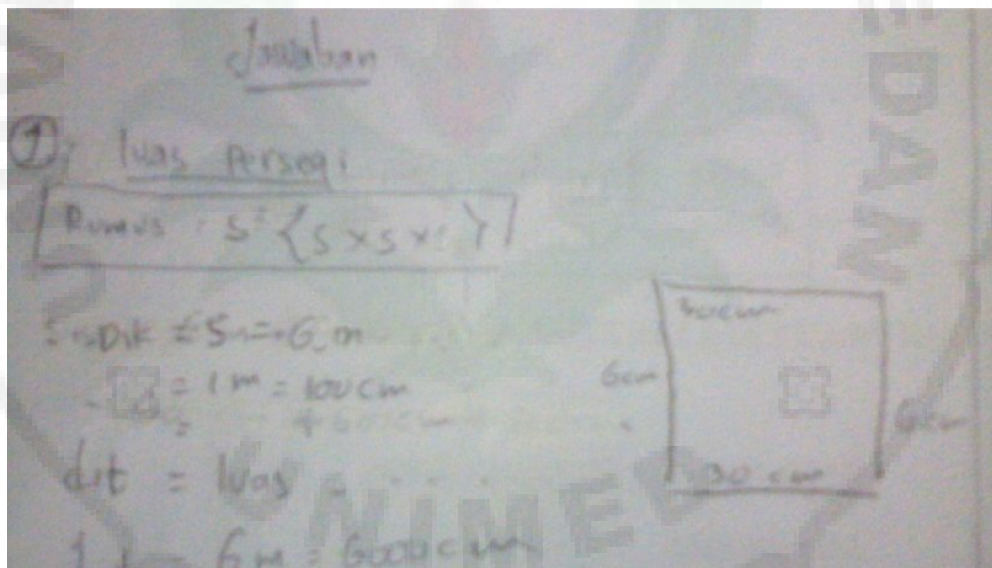 Jawaban
① luas Persegi
Rumus : S² {S x S
Dik = S = 6 m
= 1 m = 100 cm
dit = luas = . . .
6 m = 6000 cm
30 cm
6 cm
6 cm
30 cm
UNIMED
EDAN